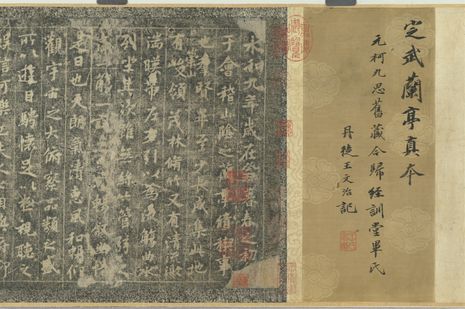 定武蘭亭真本
元柯九思舊藏今歸經訓堂畢氏
丹徒王文治記
永和九年歲在癸丑暮春之初
于會稽山陰之蘭亭脩稧事
也羣賢畢至少長咸集此地
有峻領茂林脩竹又有清流激
湍暎帶左右引以為流觴曲水
列坐其次雖無絲竹
盛一觴一詠亦足以暢敘幽情
是日也天朗氣清惠風和暢仰
觀宇宙之大俯察品類之盛
所以遊目騁懷足以極視聽之
娛信可樂也夫人之相與俯仰